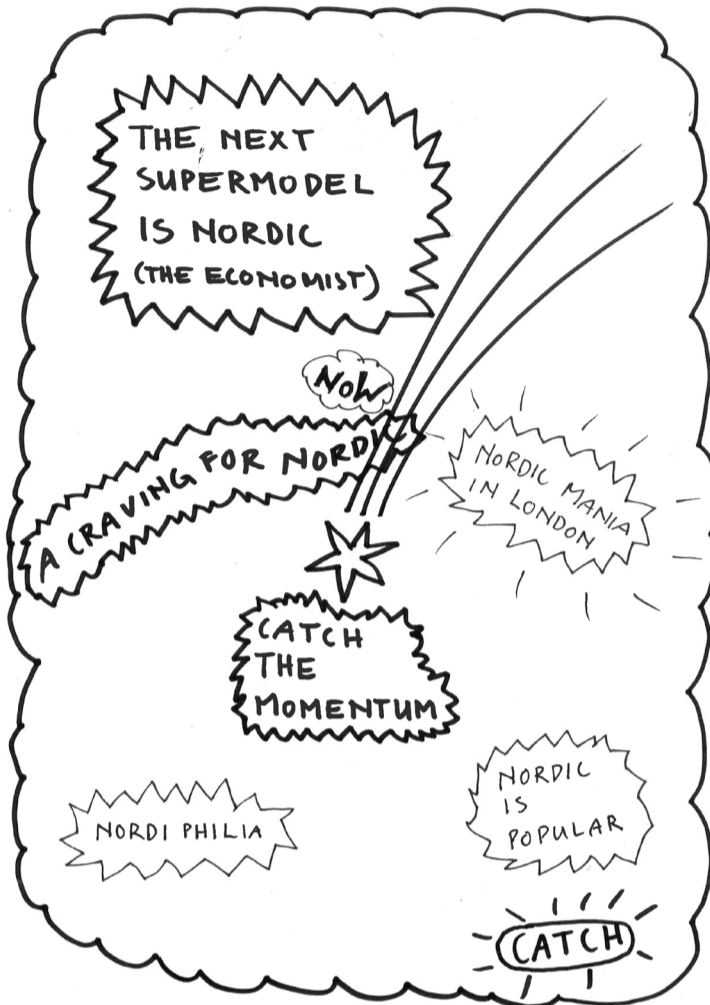 THE NEXT
SUPERMODEL
IS NORDIC
(THE ECONOMIST)
NOW
A CRAVING FOR NORDIC
NORDIC MANIA
IN LONDON
CATCH
THE
MOMENTUM
NORDI PHILIA
NORDIC
IS
POPULAR
CATCH